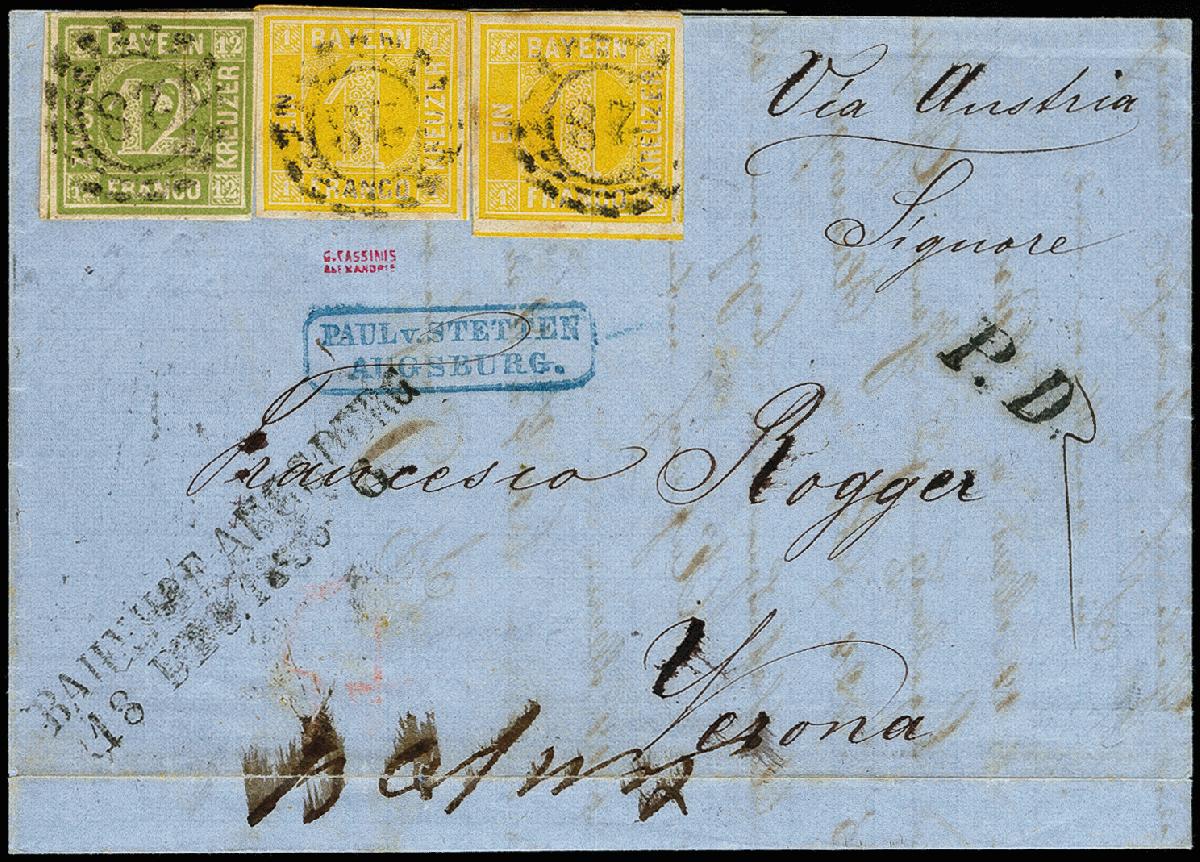 12 BAYERN 12
ZWÖLF 12 KREUZER
12 FRANCO 12
1 BAYERN 1
EIN 1 KREUZER
1 FRANCO 1
1 BAYERN 1
EIN 1 KREUZER
1 FRANCO 1
28
28
28
Via Austria
Signore
G. CASSINIS
ALEXANDRIE
PAUL v. STETTEN
AUGSBURG.
P. D.
Francesco Rogger
Verona
BAHNHOF AUGSBURG
18